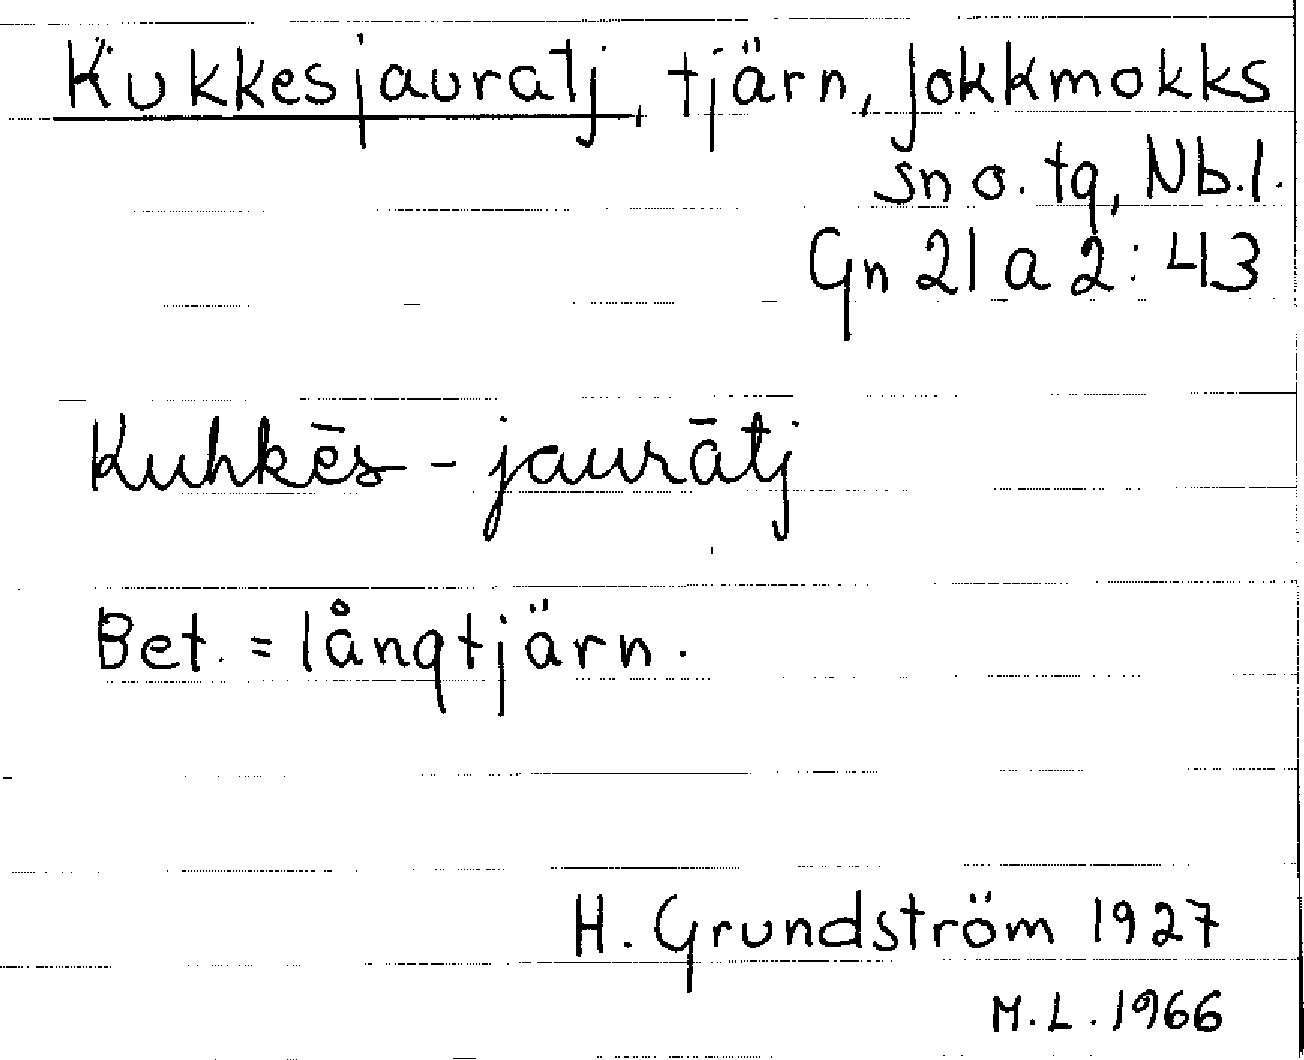 Kukkesjauratj, tjärn, Jokkmokks
sn o. tg, Nb.l.
Gn 21 a 2:43
Kuhkēs-jaurātj
Bet. = långtjärn.
H. Grundström 1927
M.L. 1966